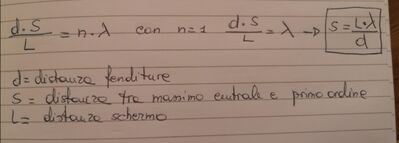 d·S/L = n·λ con n=1 d·S/L = λ → S = L·λ/d
d= distanza fenditure
S = distanza tra massimo centrale e primo ordine
L= distanza schermo